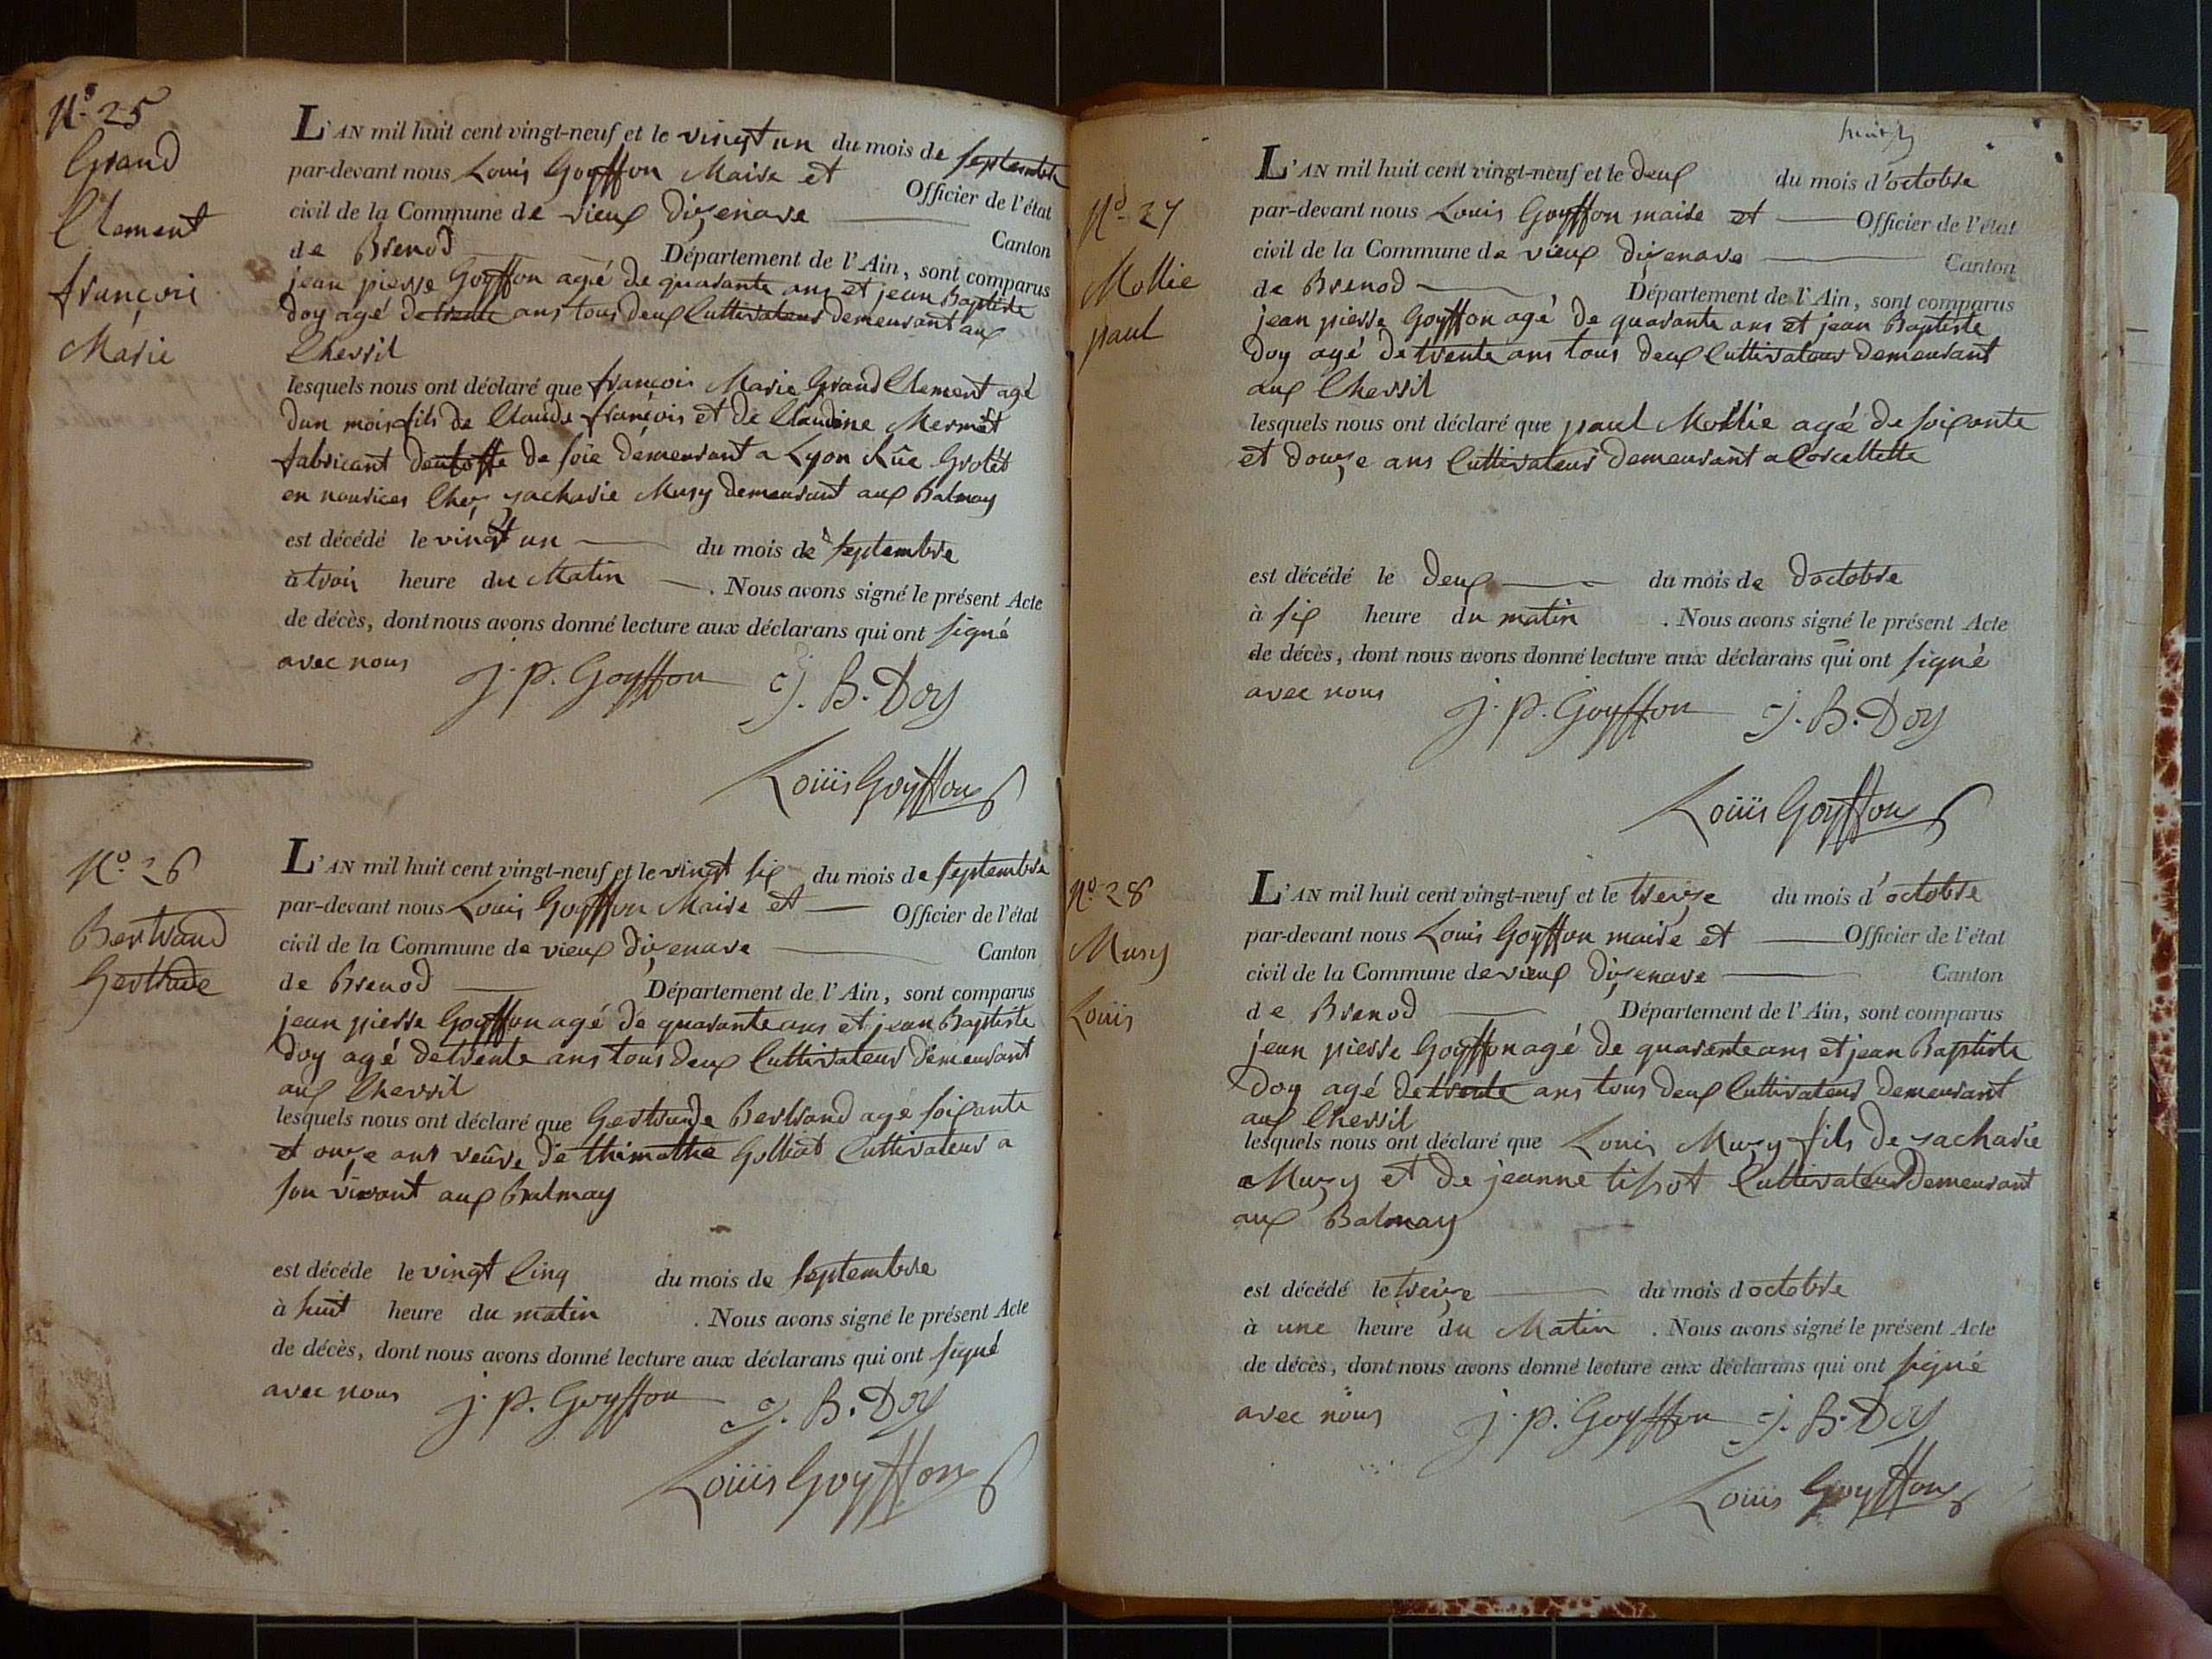 N° 25
Grand
Clement
françois
Marie
L'AN mil huit cent vingt-neuf et le vingt un du mois de septembre
par-devant nous Louis Goyffon Maire et Officier de l'état
civil de la Commune de vieux dizenave Canton
de Brenod Département de l'Ain, sont comparus
jean pierre Goyffon agé de quarante ans et jean Baptiste
Doy agé de trente ans tous deux Cultivateurs demeurant aux
Chevril
lesquels nous ont déclaré que françois Marie Grand Clement agé
dun mois fils de Claude françois et de Claudine Mermet
fabricant detoffe de soie demeurant a Lyon Rüe Grolét
en nourices Chez zacharie Muzy demeurant aux Balmay
est décédé le vingt un du mois de septembre
à trois heure du Matin . Nous avons signé le présent Acte
de décès, dont nous avons donné lecture aux déclarans qui ont signé
avec nous j. p. Goyffon J. B. Doy
Loüis Goyffon
N° 26
Bertrand
Gertrude
L'AN mil huit cent vingt-neuf et le vingt six du mois de septembre
par-devant nous Louis Goyffon Maire et Officier de l'état
civil de la Commune de vieux dizenave Canton
de Brenod Département de l'Ain, sont comparus
jean pierre Goyffon agé de quarante ans et jean Baptiste
Doy agé de trente ans tous deux Cultivateurs demeurant
aux Chevril
lesquels nous ont déclaré que Gertrude Bertrand agé soixante
et onze ans veûve de thimothe Golliat Cultivateur a
son vivant aux Balmay
est décéde le vingt Cinq du mois de septembre
à huit heure du matin . Nous avons signé le présent Acte
de décès, dont nous avons donné lecture aux déclarans qui ont signé
avec nous j. p. Goyffon J. B. Doy
Loüis Goyffon
N° 27
Mollie
paul
L'AN mil huit cent vingt-neuf et le deux du mois d'octobre
par-devant nous Louis Goyffon maire et Officier de l'état
civil de la Commune de vieux dizenave Canton
de Brenod Département de l'Ain, sont comparus
jean pierre Goyffon agé de quarante ans et jean Baptiste
Doy agé de trente ans tous deux Cultivateurs demeurant
aux Chevril
lesquels nous ont déclaré que paul Mollie agé de soixante
et douze ans Cultivateur demeurant a Corcellette
est décédé le deux du mois de doctobre
à six heure du matin . Nous avons signé le présent Acte
de décès, dont nous avons donné lecture aux déclarans qui ont signé
avec nous j. p. Goyffon J. B. Doy
Loüis Goyffon
N° 28
Muzy
Loüis
L'AN mil huit cent vingt-neuf et le treize du mois d'octobre
par-devant nous Louis Goyffon maire et Officier de l'état
civil de la Commune de vieux dizenave Canton
de Brenod Département de l'Ain, sont comparus
jean pierre Goyffon agé de quarante ans et jean Baptiste
Doy agé de trente ans tous deux Cultivateurs demeurant
aux Chevril
lesquels nous ont déclaré que Louis Muzy fils de zacharie
Muzy et de jeanne tissot Cultivateurs demeurant
aux Balmay
est décédé le treize du mois d octobre
à une heure du Matin . Nous avons signé le présent Acte
de décès, dont nous avons donné lecture aux déclarans qui ont signé
avec nous j. p. Goyffon J. B. Doy
Loüis Goyffon